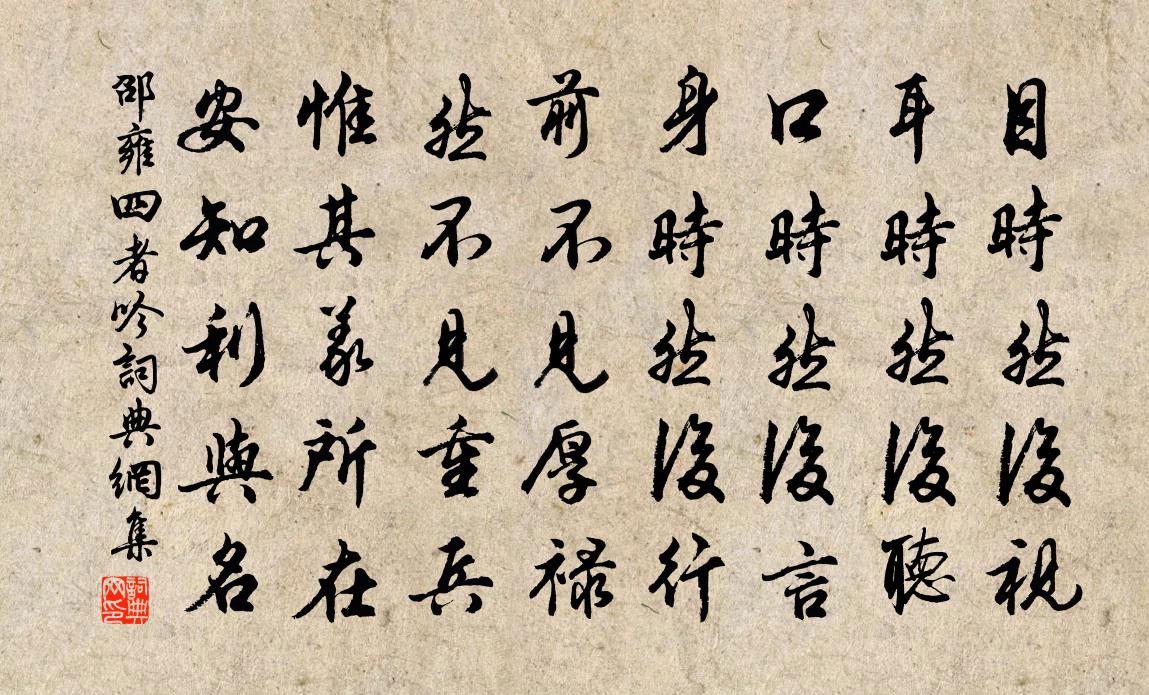 目時然後視
耳時然後聽
口時然後言
身時然後行
前不見厚祿
然不見重兵
惟其義所在
安知利與名
邵雍四者吟詞典網集
詞典
网印